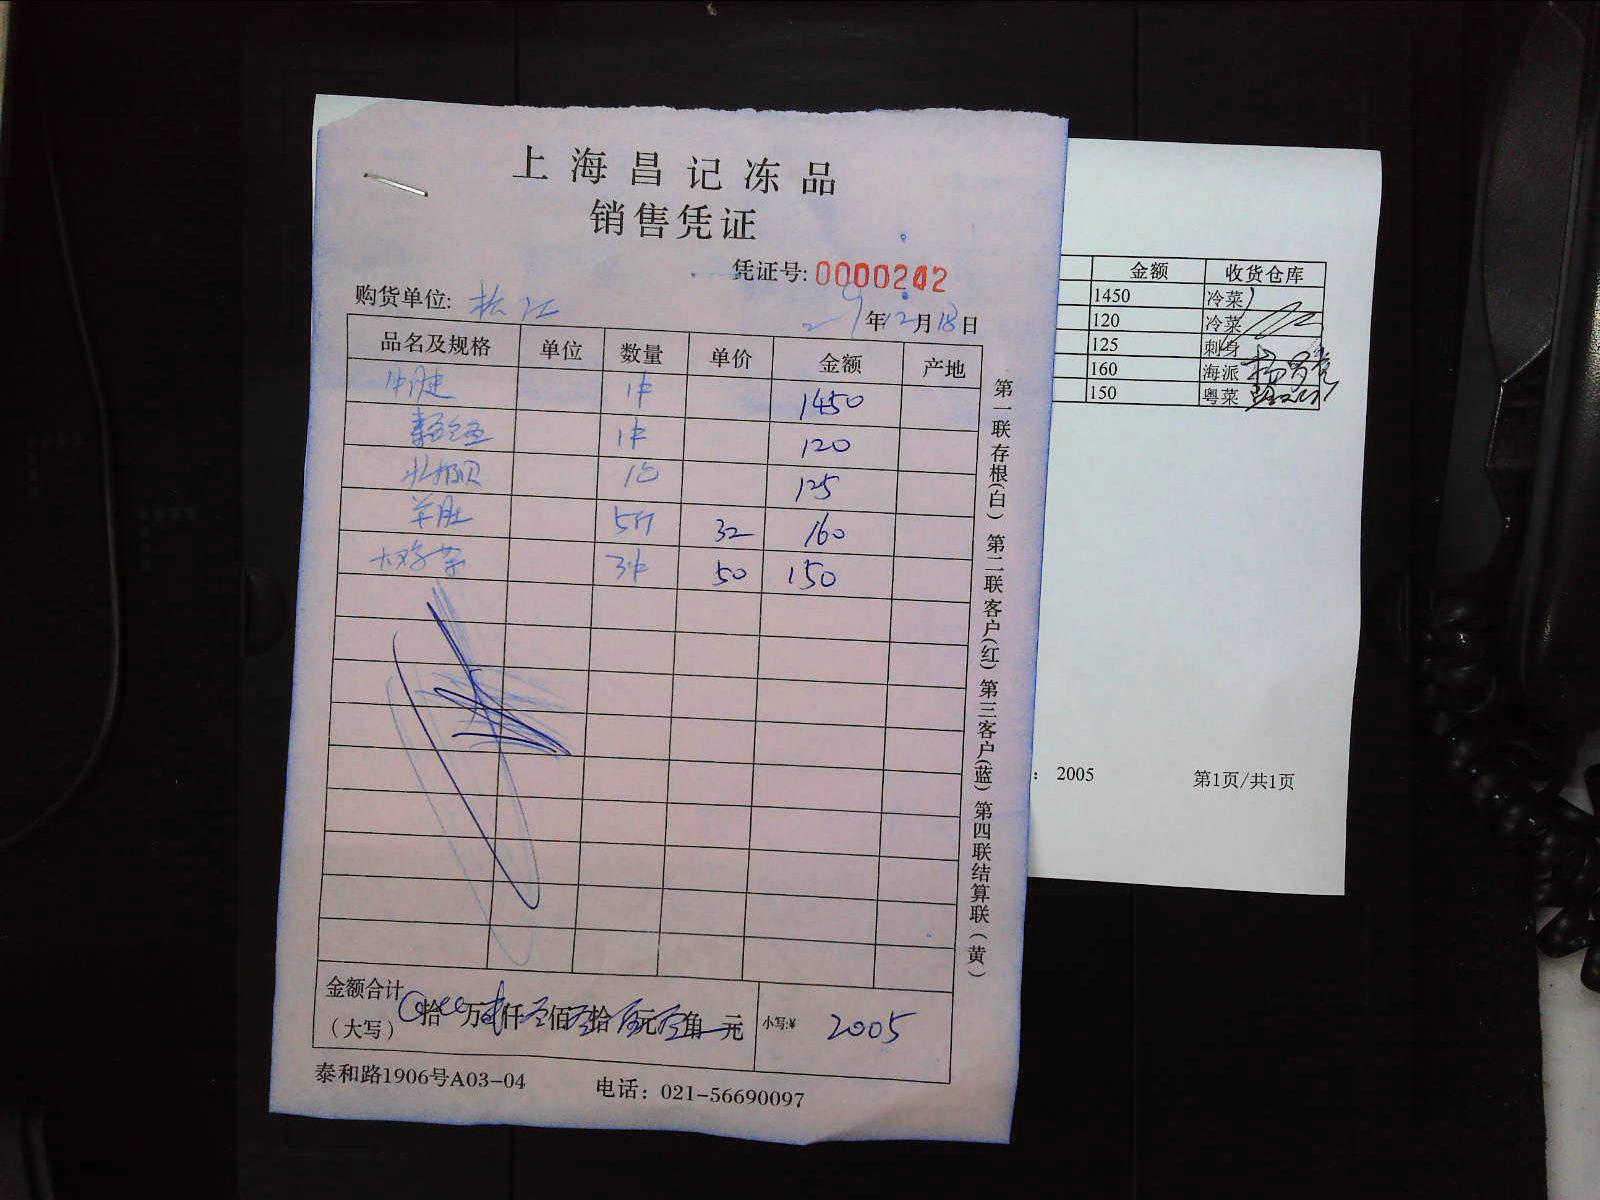 上海昌记冻品
销售凭证
凭证号: 0000242
购货单位: 松江
年12月18日
品名及规格 单位 数量 单价 金额 产地
牛腱 1件 1450
1件 120
北极贝 1包 125
羊肚 5斤 32 160
3件 50 150
金额合计(大写) 拾 万 贰仟 零佰 零拾 伍元 零角 元 小写:¥ 2005
泰和路1906号A03-04 电话: 021-56690097
第一联存根(白) 第二联客户(红) 第三客户(蓝) 第四联结算联(黄)
金额 收货仓库
1450 冷菜
120 冷菜
125 刺身
160 海派
150 粤菜
: 2005 第1页/共1页